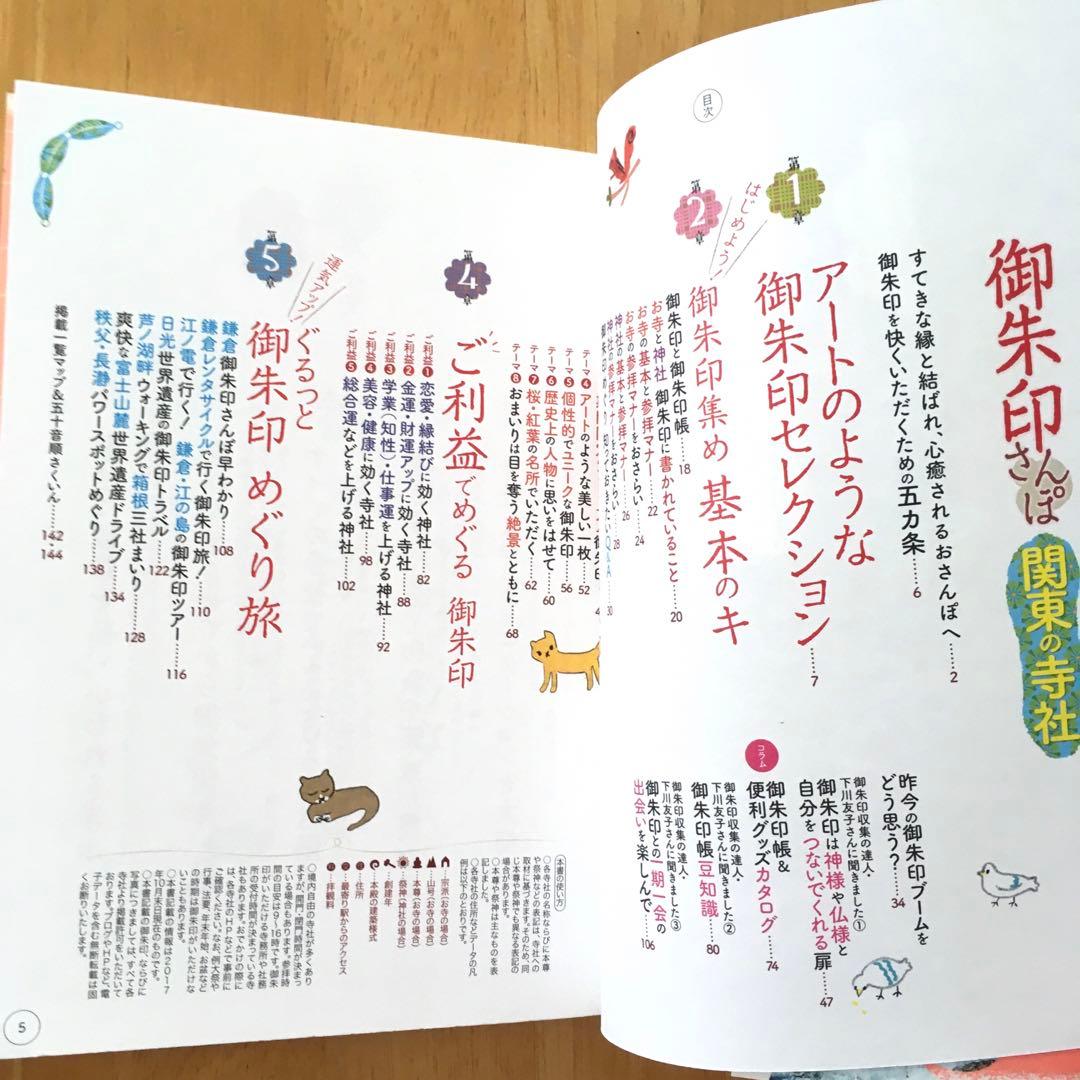 目次
御朱印さんぽ
関東の寺社
すてきな縁と結ばれ、心癒されるおさんぽへ……2
御朱印を快くいただくための五カ条……6
第1章
アートのような
御朱印セレクション……7
はじめよう!
第2章
御朱印集め 基本のキ
御朱印と御朱印帳……18
お寺と神社 御朱印に書かれていること……20
お寺の基本と参拝マナー……22
お寺の参拝マナーをおさらい……24
神社の基本と参拝マナー……26
神社の参拝マナーをおさらい……28
Q&A……30
コラム
昨今の御朱印ブームを
どう思う?……34
御朱印収集の達人・
下川友子さんに聞きました①
御朱印は神様や仏様と
自分をつないでくれる扉……47
御朱印帳&
便利グッズカタログ……74
御朱印収集の達人・
下川友子さんに聞きました②
御朱印帳豆知識……80
御朱印収集の達人・
下川友子さんに聞きました③
御朱印との一期一会の
出会いを楽しんで……106
テーマ④ アートのような美しい一枚……52
テーマ⑤ 個性的でユニークな御朱印……56
テーマ⑥ 歴史上の人物に思いをはせて……60
テーマ⑦ 桜・紅葉の名所でいただく……62
テーマ⑧ おまいりは目を奪う絶景とともに……68
第4章
ご利益でめぐる 御朱印
ご利益① 恋愛・縁結びに効く神社……82
ご利益② 金運・財運アップに効く寺社……88
ご利益③ 学業(知性)・仕事運を上げる神社……92
ご利益④ 美容・健康に効く寺社……98
ご利益⑤ 総合運などを上げる神社……102
運気アップ!
第5章
ぐるっと
御朱印めぐり旅
鎌倉御朱印さんぽ早わかり……108
鎌倉レンタサイクルで行く御朱印旅!……110
江ノ電で行く! 鎌倉・江の島の御朱印ツアー……116
日光世界遺産の御朱印トラベル……122
芦ノ湖畔ウォーキングで箱根三社まいり……128
爽快な富士山麓世界遺産ドライブ……134
秩父・長瀞パワースポットめぐり……138
掲載一覧マップ&五十音順さくいん……142・144
[本書の使い方]
○各寺社の名称ならびに本尊
や祭神などの表記は、寺社への
取材に基づきます。そのため、同
じ本尊や祭神でも異なる表記の
場合があります。
○本尊や祭神は主なものを表
記しました。
○各寺社の住所などデータの凡
例は以下のとおりです。
宗派(お寺の場合)
山号(お寺の場合)
本尊(お寺の場合)
祭神(神社の場合)
創建年
本殿の建築様式
住所
最寄り駅からのアクセス
拝観料
○境内自由の寺社が多くあり
ますが、開門・閉門時間が決まっ
ている場合もあります。参拝時
間の目安は9〜16時です。御朱
印がいただける寺務所や社務
所の受付時間が決まっている寺
社もあります。おでかけの際に
は、各寺社のHPなどで事前に
ご確認ください。なお、例大祭や
行事、法要、年末年始、お盆など
の時期は御朱印がいただけな
いこともあります。
○本書記載の情報は2017
年10月末日現在のものです。
○本書記載の御朱印、ならびに
写真につきましては、すべて各
寺社より掲載許可をいただいて
おります。ブログやHPなど、電
子データを含む無断転載は固
くお断りいたします。
5